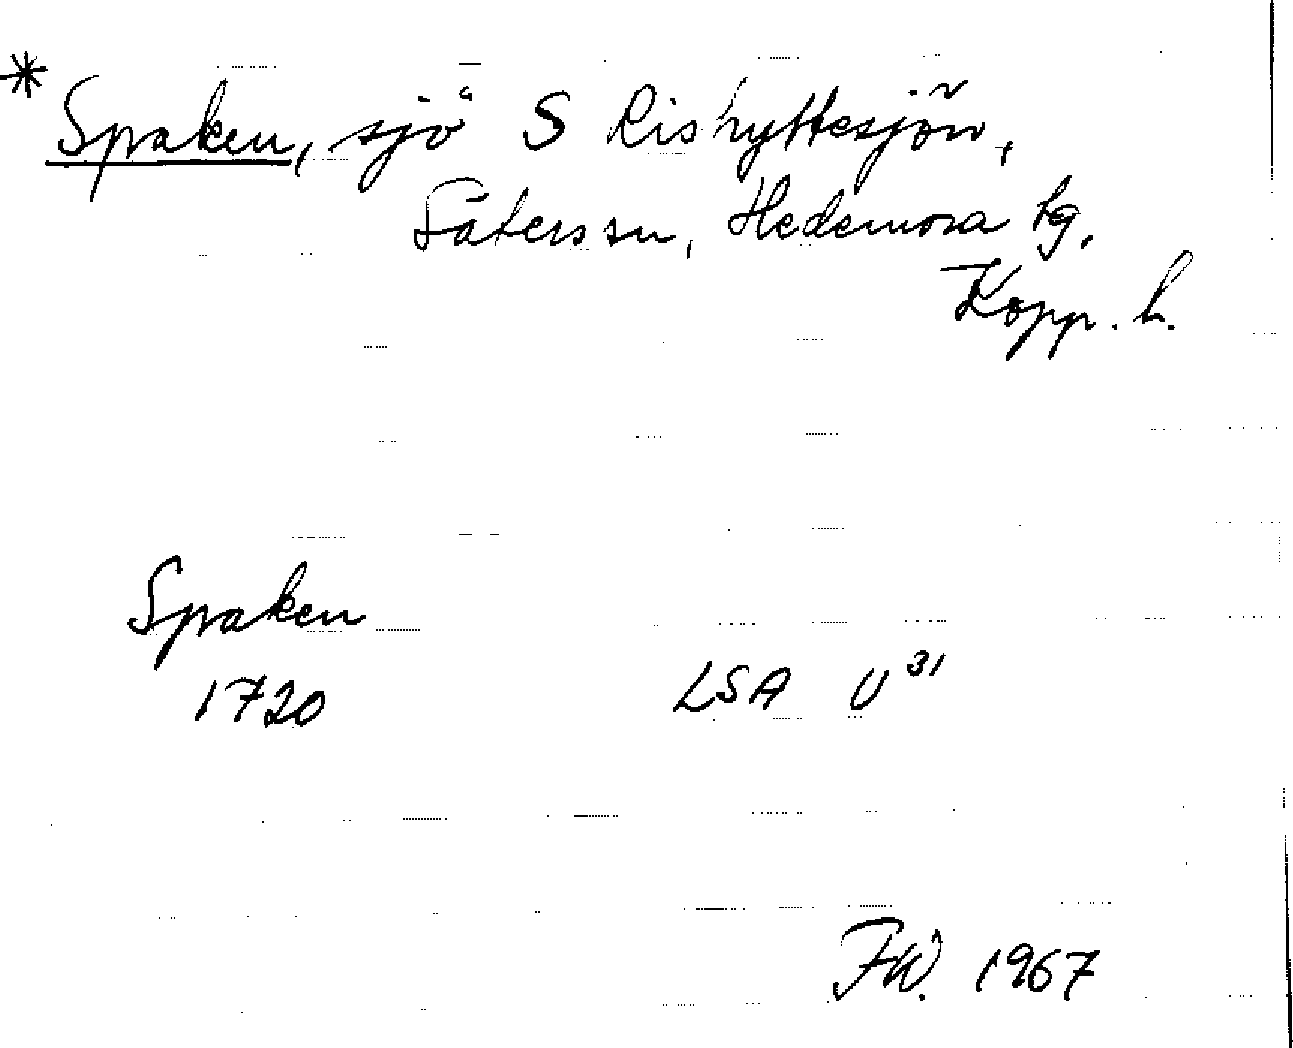 * Spaken, sjö S Rishyttesjön,
Säters sn, Hedemora tg,
Kopp. l.
Spaken
1720 LSA U 31
FW. 1967